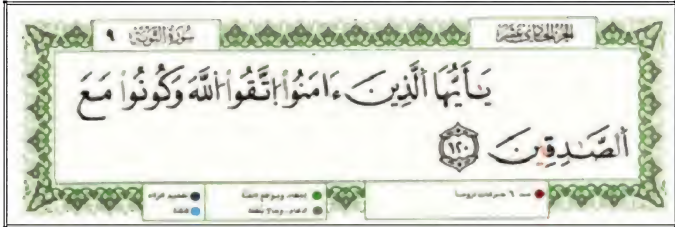 الجزء الحادي عشر
سورة التوبة ٩
يَـٰٓأَيُّهَا ٱلَّذِينَ ءَامَنُوا۟ ٱتَّقُوا۟ ٱللَّهَ وَكُونُوا۟ مَعَ
ٱلصَّـٰدِقِينَ ١٢٠